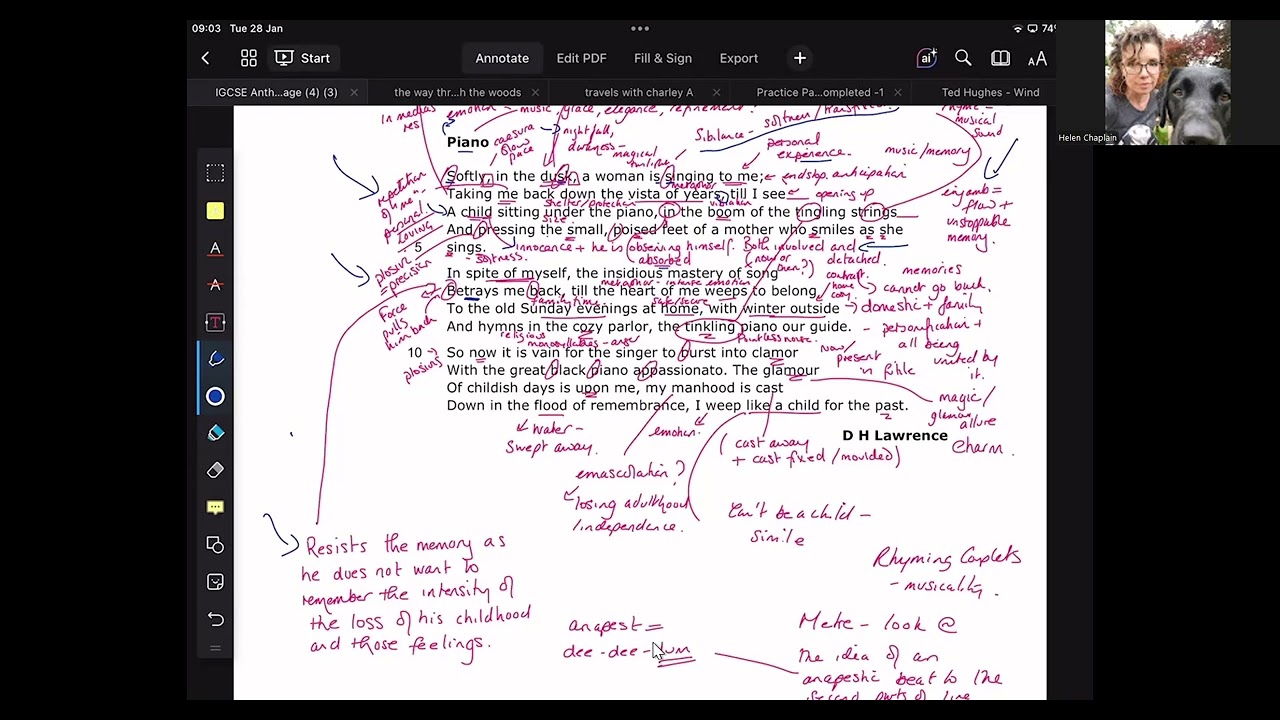 09:03 Tue 28 Jan
74%
Start
Annotate
Edit PDF
Fill & Sign
Export
ai+
AA
IGCSE Anth...age (4) (3)
the way thr...h the woods
travels with charley A
Practice Pa...ompleted -1
Ted Hughes - Wind
Helen Chaplain
in medias res
emotion - music / grace, elegance, refinement?
Sibilance - softness /
rhyme -
musical
sound
Piano
caesura
slow
pace
nightfall,
darkness -
magical
personal
experience.
music/memory
Softly, in the dusk, a woman is singing to me;
← endstop. anticipation
metaphor
Taking me back down the vista of years, till I see
← opening up
shelter/protection
size
vibration
A child sitting under the piano, in the boom of the tingling strings
And pressing the small, poised feet of a mother who smiles as she
5 sings.
repetition
of me -
personal
loving
enjamb =
flow +
unstoppable
memory.
innocence + he is observing himself.
absorbed
Both involved and
detached.
(now or
then?)
contrast.
softness.
plosive
precision
In spite of myself, the insidious mastery of song
metaphor - intense emotion
Betrays me back, till the heart of me weeps to belong
family time
safe/secure
home
cosy
To the old Sunday evenings at home, with winter outside
And hymns in the cozy parlor, the tinkling piano our guide.
memories
cannot go back.
→ domestic + family
- personification +
all being
united by
it.
Force
pulls
him back
religious
monosyllables - anger
pointless noise.
10 So now it is vain for the singer to burst into clamor
now/
present
plosive
With the great black piano appassionato. The glamour
Of childish days is upon me, my manhood is cast
Down in the flood of remembrance, I weep like a child for the past.
magic/
glamour
allure
charm.
D H Lawrence
water -
swept away.
emotion.
(cast away
+ cast fixed / moulded)
emasculation?
losing adulthood
/independence.
Can't be a child -
simile
Resists the memory as
he does not want to
remember the intensity of
the loss of his childhood
and those feelings.
Rhyming Couplets
- musicality.
anapest =
dee - dee - dum
Metre - look @
the idea of an
anapestic beat to the
second parts of line